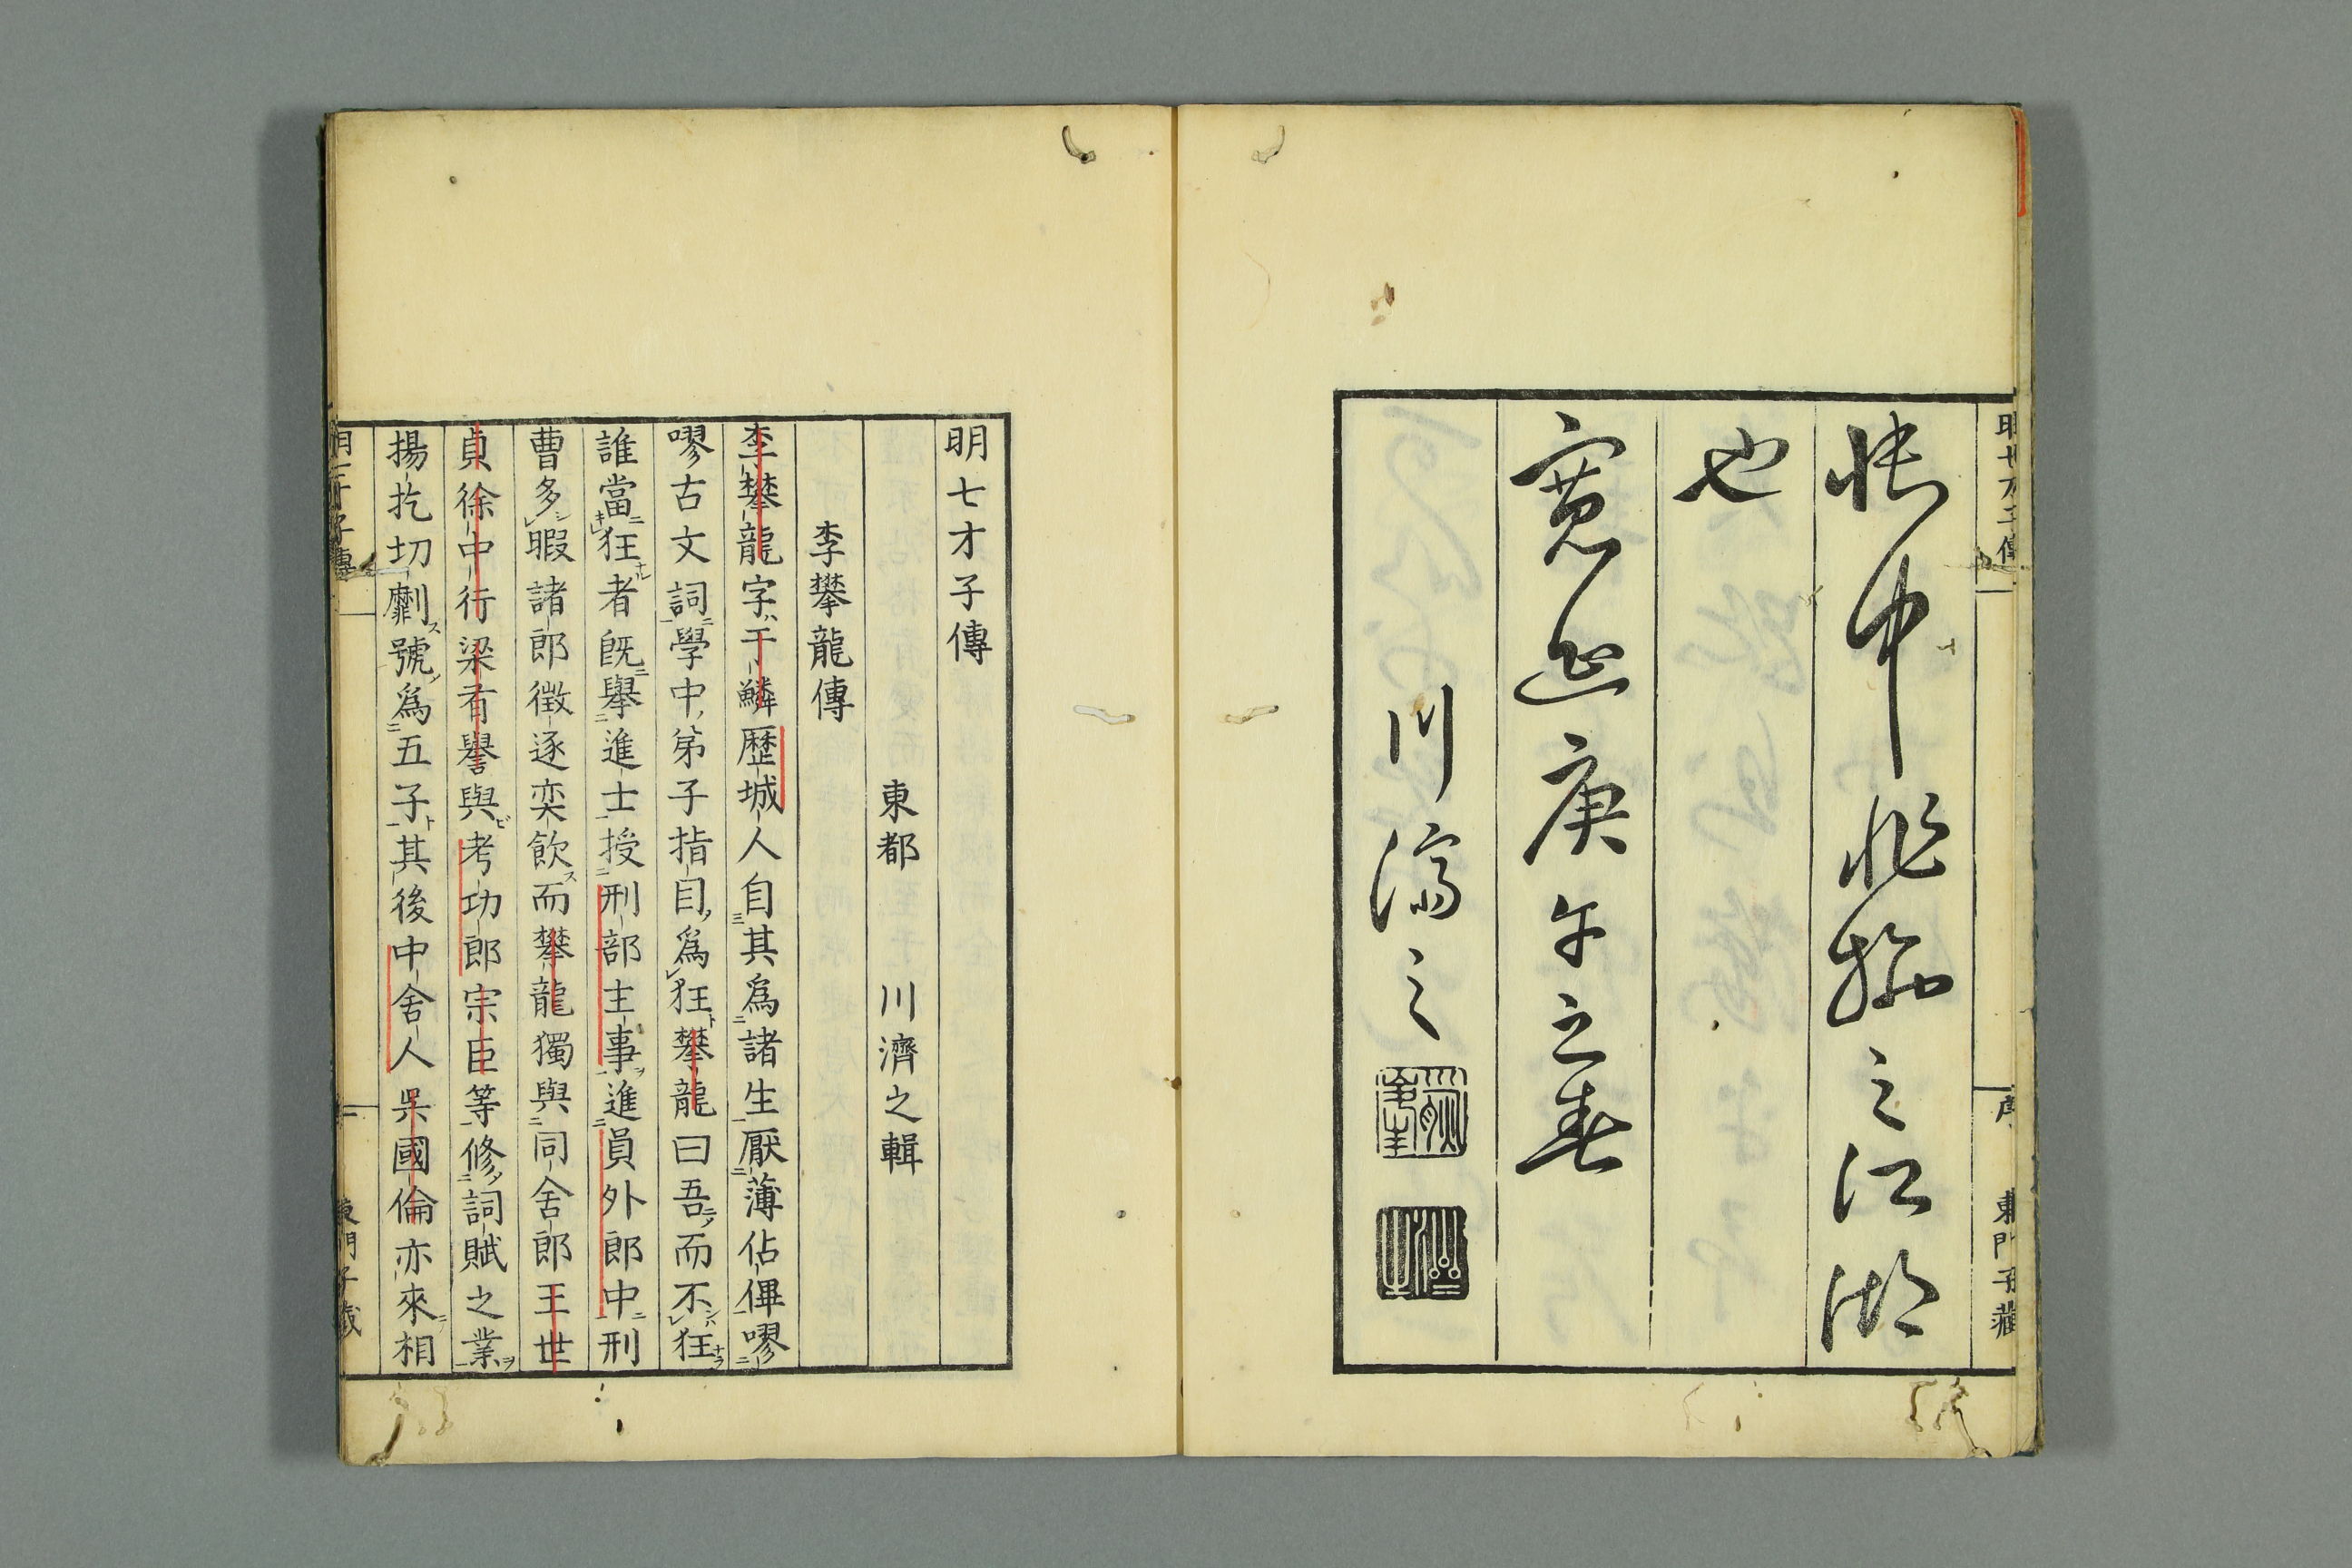 帳中非務之江湖
也
寛延庚午之春
川濟之
序
東門子藏
明七才子傳
東都 川濟之輯
李攀龍傳
李攀龍字ハ于鱗歷城人自其爲諸生厭薄佔僤嘐
嘐古文詞學中弟子指目爲狂攀龍曰吾而不狂
誰當狂者既舉進士授刑部主事進員外郎中刑
曹多暇諸郎徴逐奕飲而攀龍獨與同舍郎王世
貞徐中行梁有譽與考功郎宗臣等修詞賦之業
揚扢切劘號爲五子其後中舍人吳國倫亦來相